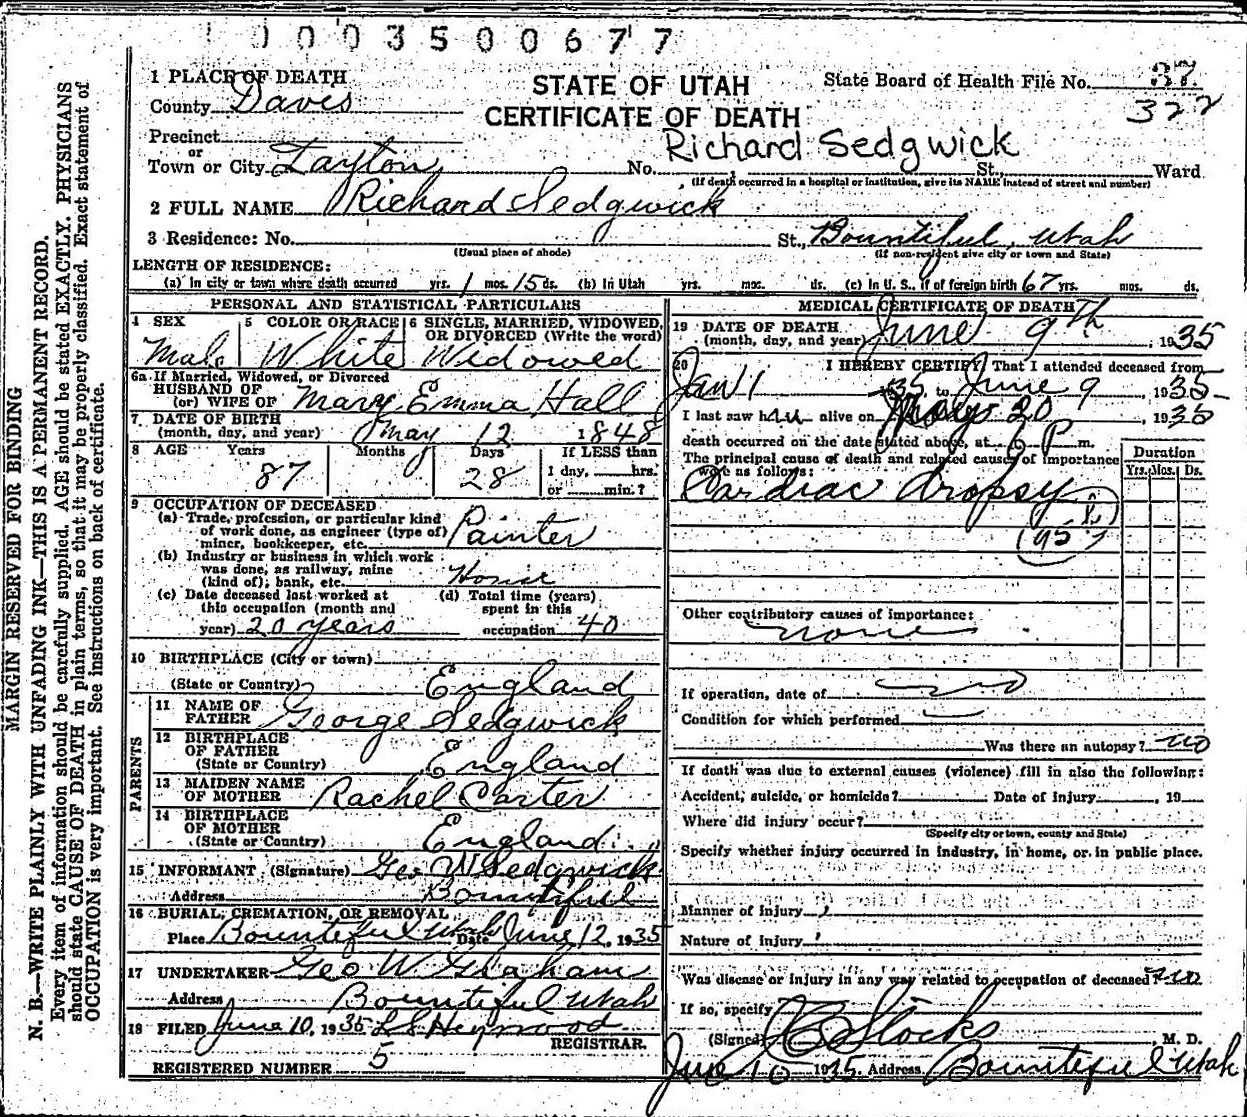 1 0 0 3 5 0 0 6 7 7
1 PLACE OF DEATH
County Davis
Precinct
or
Town or City Layton
STATE OF UTAH
CERTIFICATE OF DEATH
State Board of Health File No. 37
322
Richard Sedgwick
No. , St., Ward
(If death occurred in a hospital or institution, give its NAME instead of street and number)
2 FULL NAME Richard Sedgwick
3 Residence: No. St., Bountiful, Utah
(Usual place of abode) (If non-resident give city or town and State)
LENGTH OF RESIDENCE:
(a) In city or town where death occurred yrs. 1 mos. 15 ds. (b) In Utah yrs. mos. ds. (c) In U. S., if of foreign birth 67 yrs. mos. ds.
PERSONAL AND STATISTICAL PARTICULARS
4 SEX 5 COLOR OR RACE 6 SINGLE, MARRIED, WIDOWED,
OR DIVORCED (Write the word)
Male White Widowed
6a If Married, Widowed, or Divorced
HUSBAND OF
(or) WIFE OF Mary Emma Hall
7 DATE OF BIRTH
(month, day, and year) May 12 1848
8 AGE Years Months Days If LESS than
1 day, hrs.
87 0 28 or min.?
9 OCCUPATION OF DECEASED
(a) Trade, profession, or particular kind
of work done, as engineer (type of)
miner, bookkeeper, etc. Painter
(b) Industry or business in which work
was done, as railway, mine
(kind of); bank, etc.
(c) Date deceased last worked at (d) Total time (years)
this occupation (month and spent in this
year) 20 years occupation 40
10 BIRTHPLACE (City or town)
(State or Country) England
PARENTS
11 NAME OF
FATHER George Sedgwick
12 BIRTHPLACE
OF FATHER
(State or Country) England
13 MAIDEN NAME
OF MOTHER Rachel Carter
14 BIRTHPLACE
OF MOTHER
(State or Country) England
15 INFORMANT (Signature) Geo W Sedgwick
Address Bountiful
16 BURIAL, CREMATION, OR REMOVAL
Place Bountiful Utah Date June 12, 1935
17 UNDERTAKER Geo W. Graham
Address Bountiful Utah
18 FILED June 10, 1935 L S Heywood
REGISTRAR.
REGISTERED NUMBER 5
MEDICAL CERTIFICATE OF DEATH
19 DATE OF DEATH
(month, day, and year) June 9th, 1935
20 I HEREBY CERTIFY, That I attended deceased from
Jan 1 35, to June 9, 1935
I last saw him alive on May 20, 1935
death occurred on the date stated above, at 6 P m.
The principal cause of death and related causes of importance
were as follows:
Duration
Yrs. Mos. Ds.
Cardiac dropsy
95
Other contributory causes of importance:
none
If operation, date of no
Condition for which performed
Was there an autopsy? no
If death was due to external causes (violence) fill in also the following:
Accident, suicide, or homicide? Date of injury , 19
Where did injury occur?
(Specify city or town, county and State)
Specify whether injury occurred in industry, in home, or in public place.
Manner of injury
Nature of injury
Was disease or injury in any way related to occupation of deceased? no
If so, specify
(Signed) Stocks, M. D.
June 10 1935 Address Bountiful Utah
MARGIN RESERVED FOR BINDING
N. B.—WRITE PLAINLY WITH UNFADING INK—THIS IS A PERMANENT RECORD.
Every item of information should be carefully supplied. AGE should be stated EXACTLY. PHYSICIANS
should state CAUSE OF DEATH in plain terms, so that it may be properly classified. Exact statement of
OCCUPATION is very important. See instructions on back of certificate.